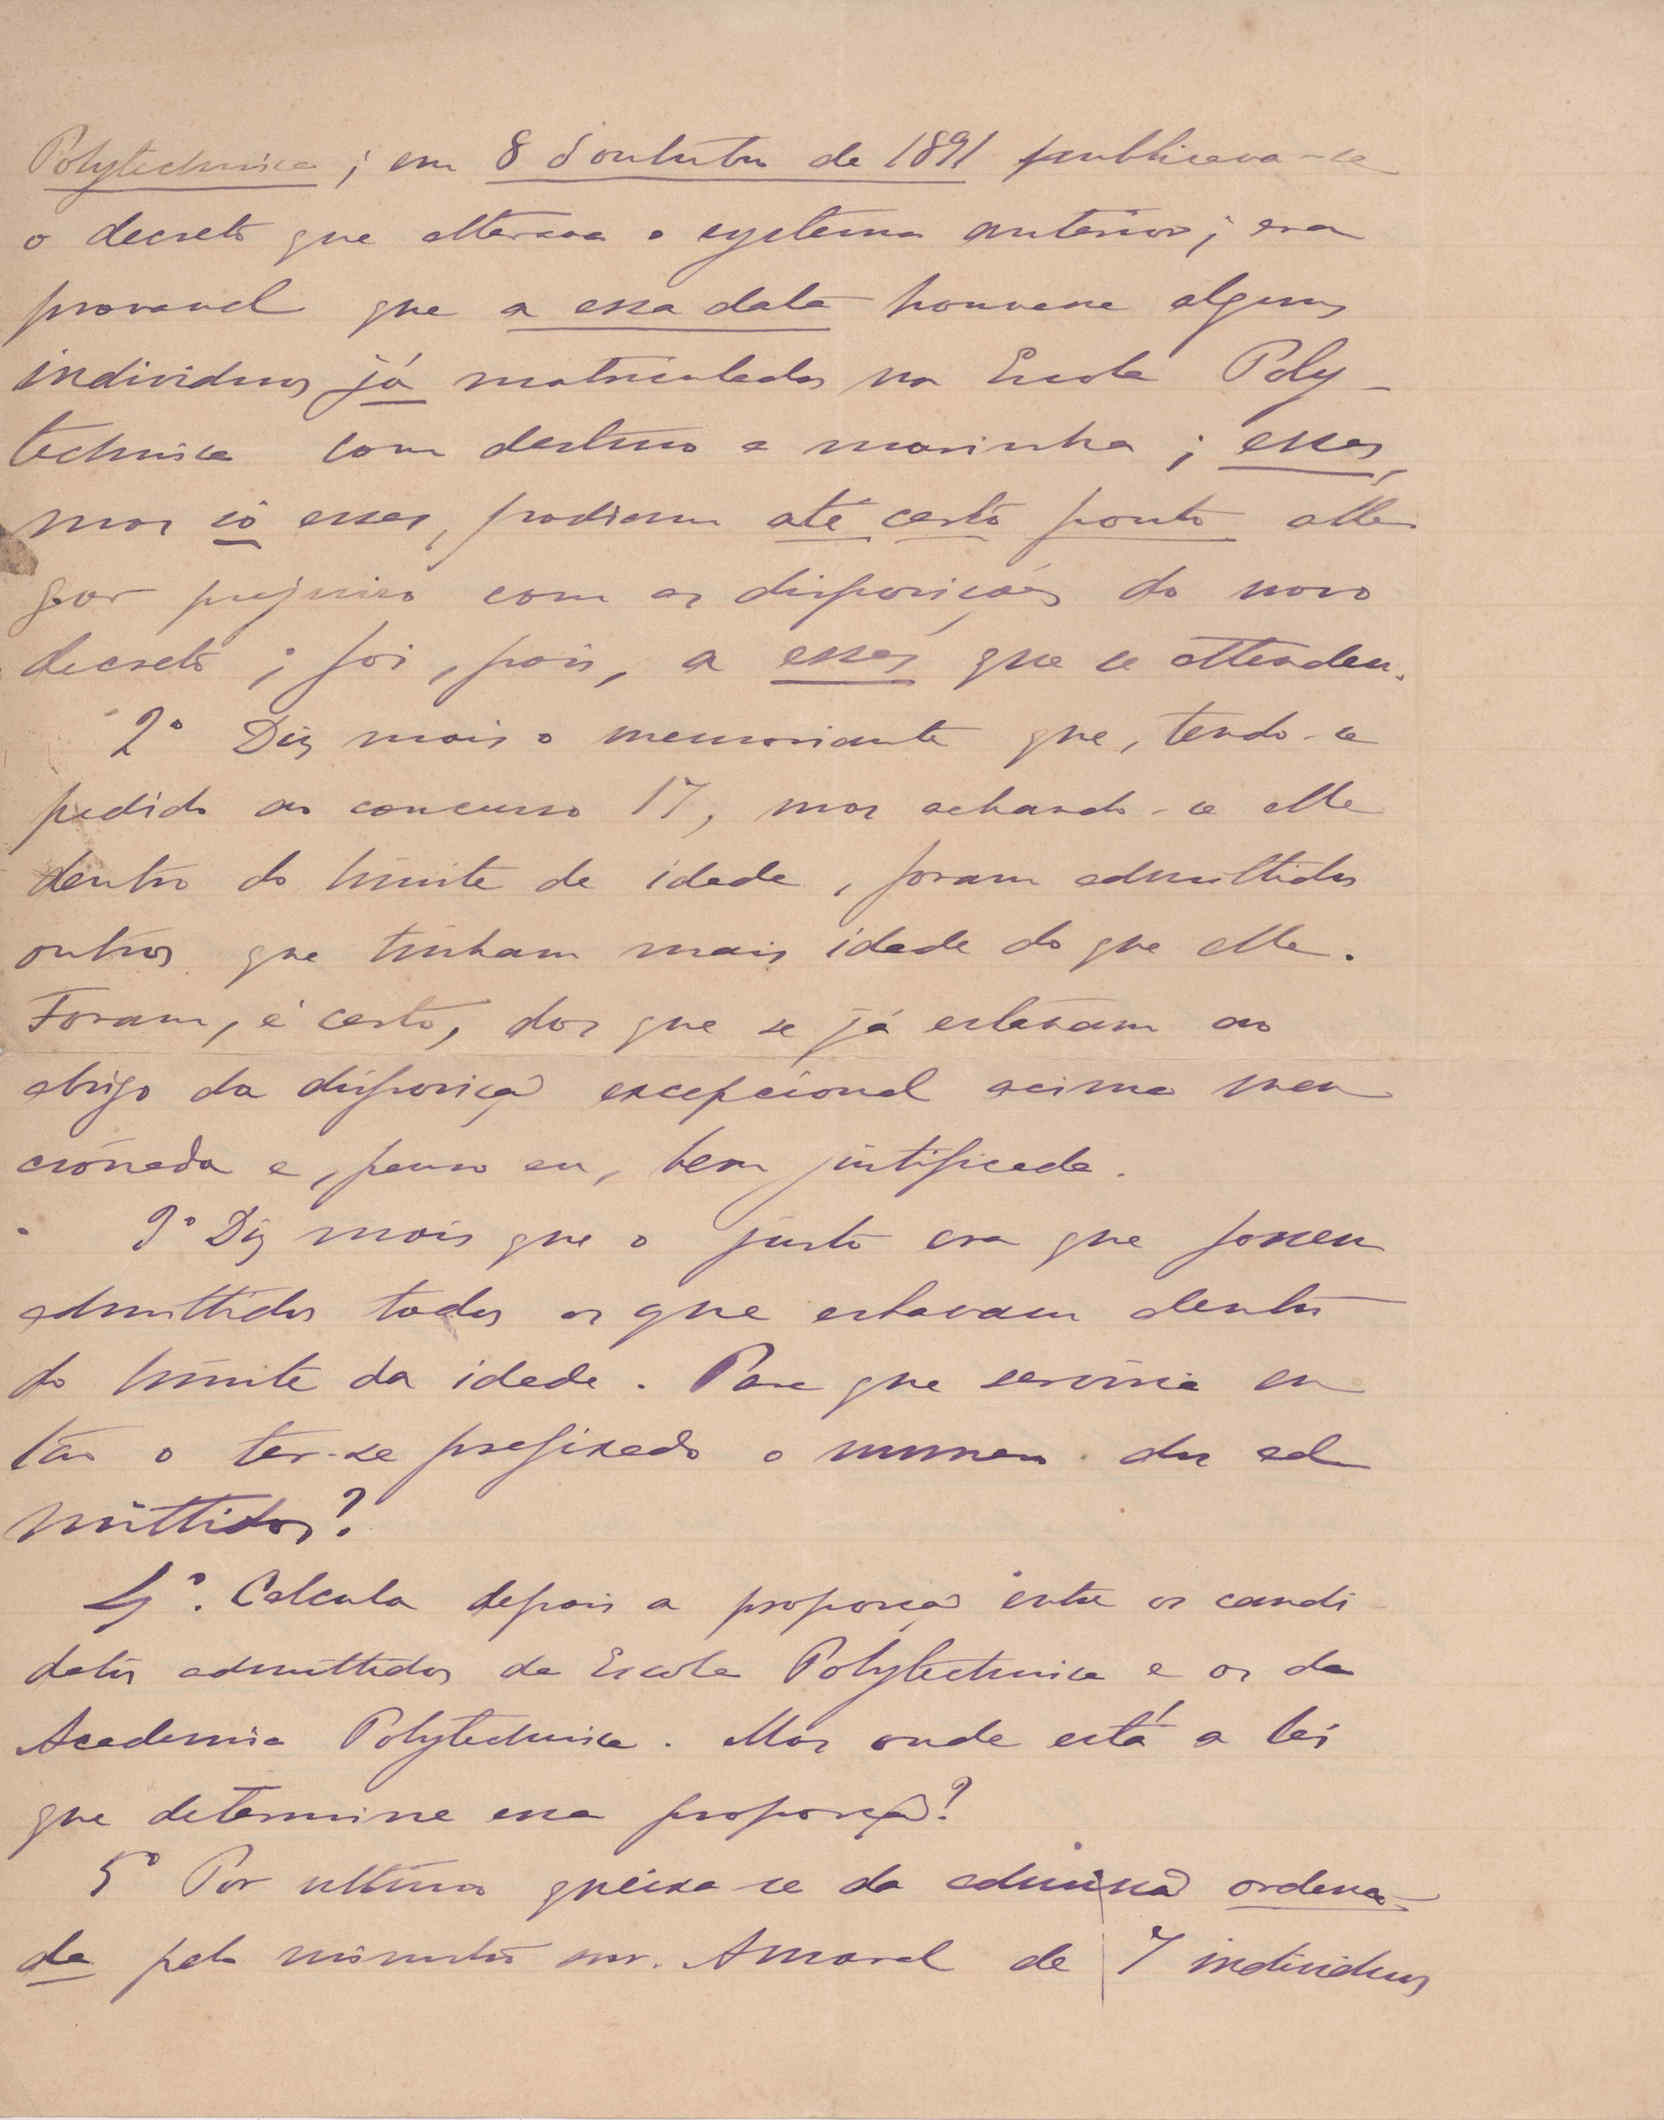 Polytechnica; em 8 d'outubro de 1891 publicava-se
o decreto que alterava o systema anterior; era
provavel que a essa data houvesse alguns
individuos já matriculados na Escola Poly-
technica com destino a marinha; esses,
mas só esses, podiam até certo ponto alle
gar prejuiso com as disposições do novo
decreto; foi, pois, a esses que se attendeu.
2º Diz mais o memoriante que, tendo-se
pedido ao concurso 17, mas achando-se elle
dentro do limite de idade, foram admittidos
outros que tinham mais idade do que elle.
Foram, é certo, dos que se já estavam ao
abrigo da disposição excepcional acima men
cionada e, penso eu, bem justificada.
3º Diz mais que o justo era que fossem
admittidos todos os que estavam dentro
do limite da idade. Para que serviria en
tão o ter-se prefixado o numero dos ad
mittidos?
4º. Calcula depois a proporção entre os candi
datos admittidos da Escola Polytechnica e os da
Academia Polytechnica. Mas onde está a lei
que determine essa proporção?
5º Por ultimo queixa-se da admissão ordena-
da pelo ministro snr. Amaral de 7 individuos